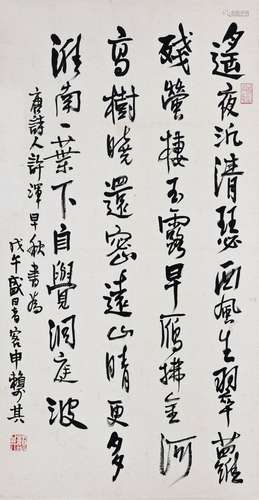 遙夜泛清瑟西風生翠蘿
殘螢棲玉露早雁拂金河
高樹曉還密遠山晴更多
淮南一葉下自覺洞庭波
唐詩人許渾早秋書為
戊午盛暑客申賴少其